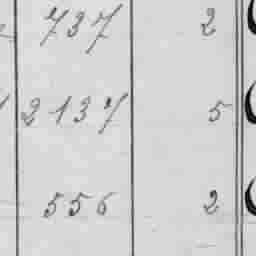 737 2
2137 5
556 2